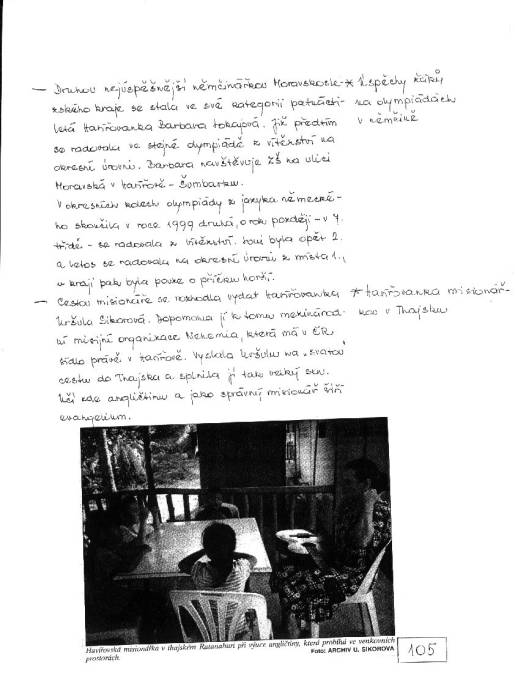 — Druhou nejúspěšnější němčinářkou Moravskosle-
zského kraje se stala ve své kategorii patnácti-
letá Havířovanka Barbara Tokajová. Již předtím
se radovala ve stejné olympiádě z vítězství na
okresní úrovni. Barbara navštěvuje ZŠ na ulici
Moravská v Havířově - Šumbarku.
V okresních kolech olympiády z jazyka německé-
ho skončila v roce 1999 druhá, o rok později - v 7.
třídě - se radovala z vítězství. Loni byla opět 2.
a letos se radovala na okresní úrovni z místa 1.,
v kraji pak byla pouze o příčku horší.
* Úspěchy žáků
na olympiádách
v němčině
— Cestou misionáře se rozhodla vydat Havířovanka
Uršula Sikorová. Dopomohla jí k tomu mezinárod-
ní misijní organizace Nehemia, která má v ČR
sídlo právě v Havířově. Vyslala Uršulu na „svatou"
cestu do Thajska a splnila jí tak velký sen.
Učí zde angličtinu a jako správný misionář šíří
evangelium.
* Havířovanka misionář-
kou v Thajsku
Havířovská misionářka v thajském Ratanaburi při výuce angličtiny, která probíhá ve venkovních
prostorách.
Foto: ARCHIV U. SIKOROVÁ
105